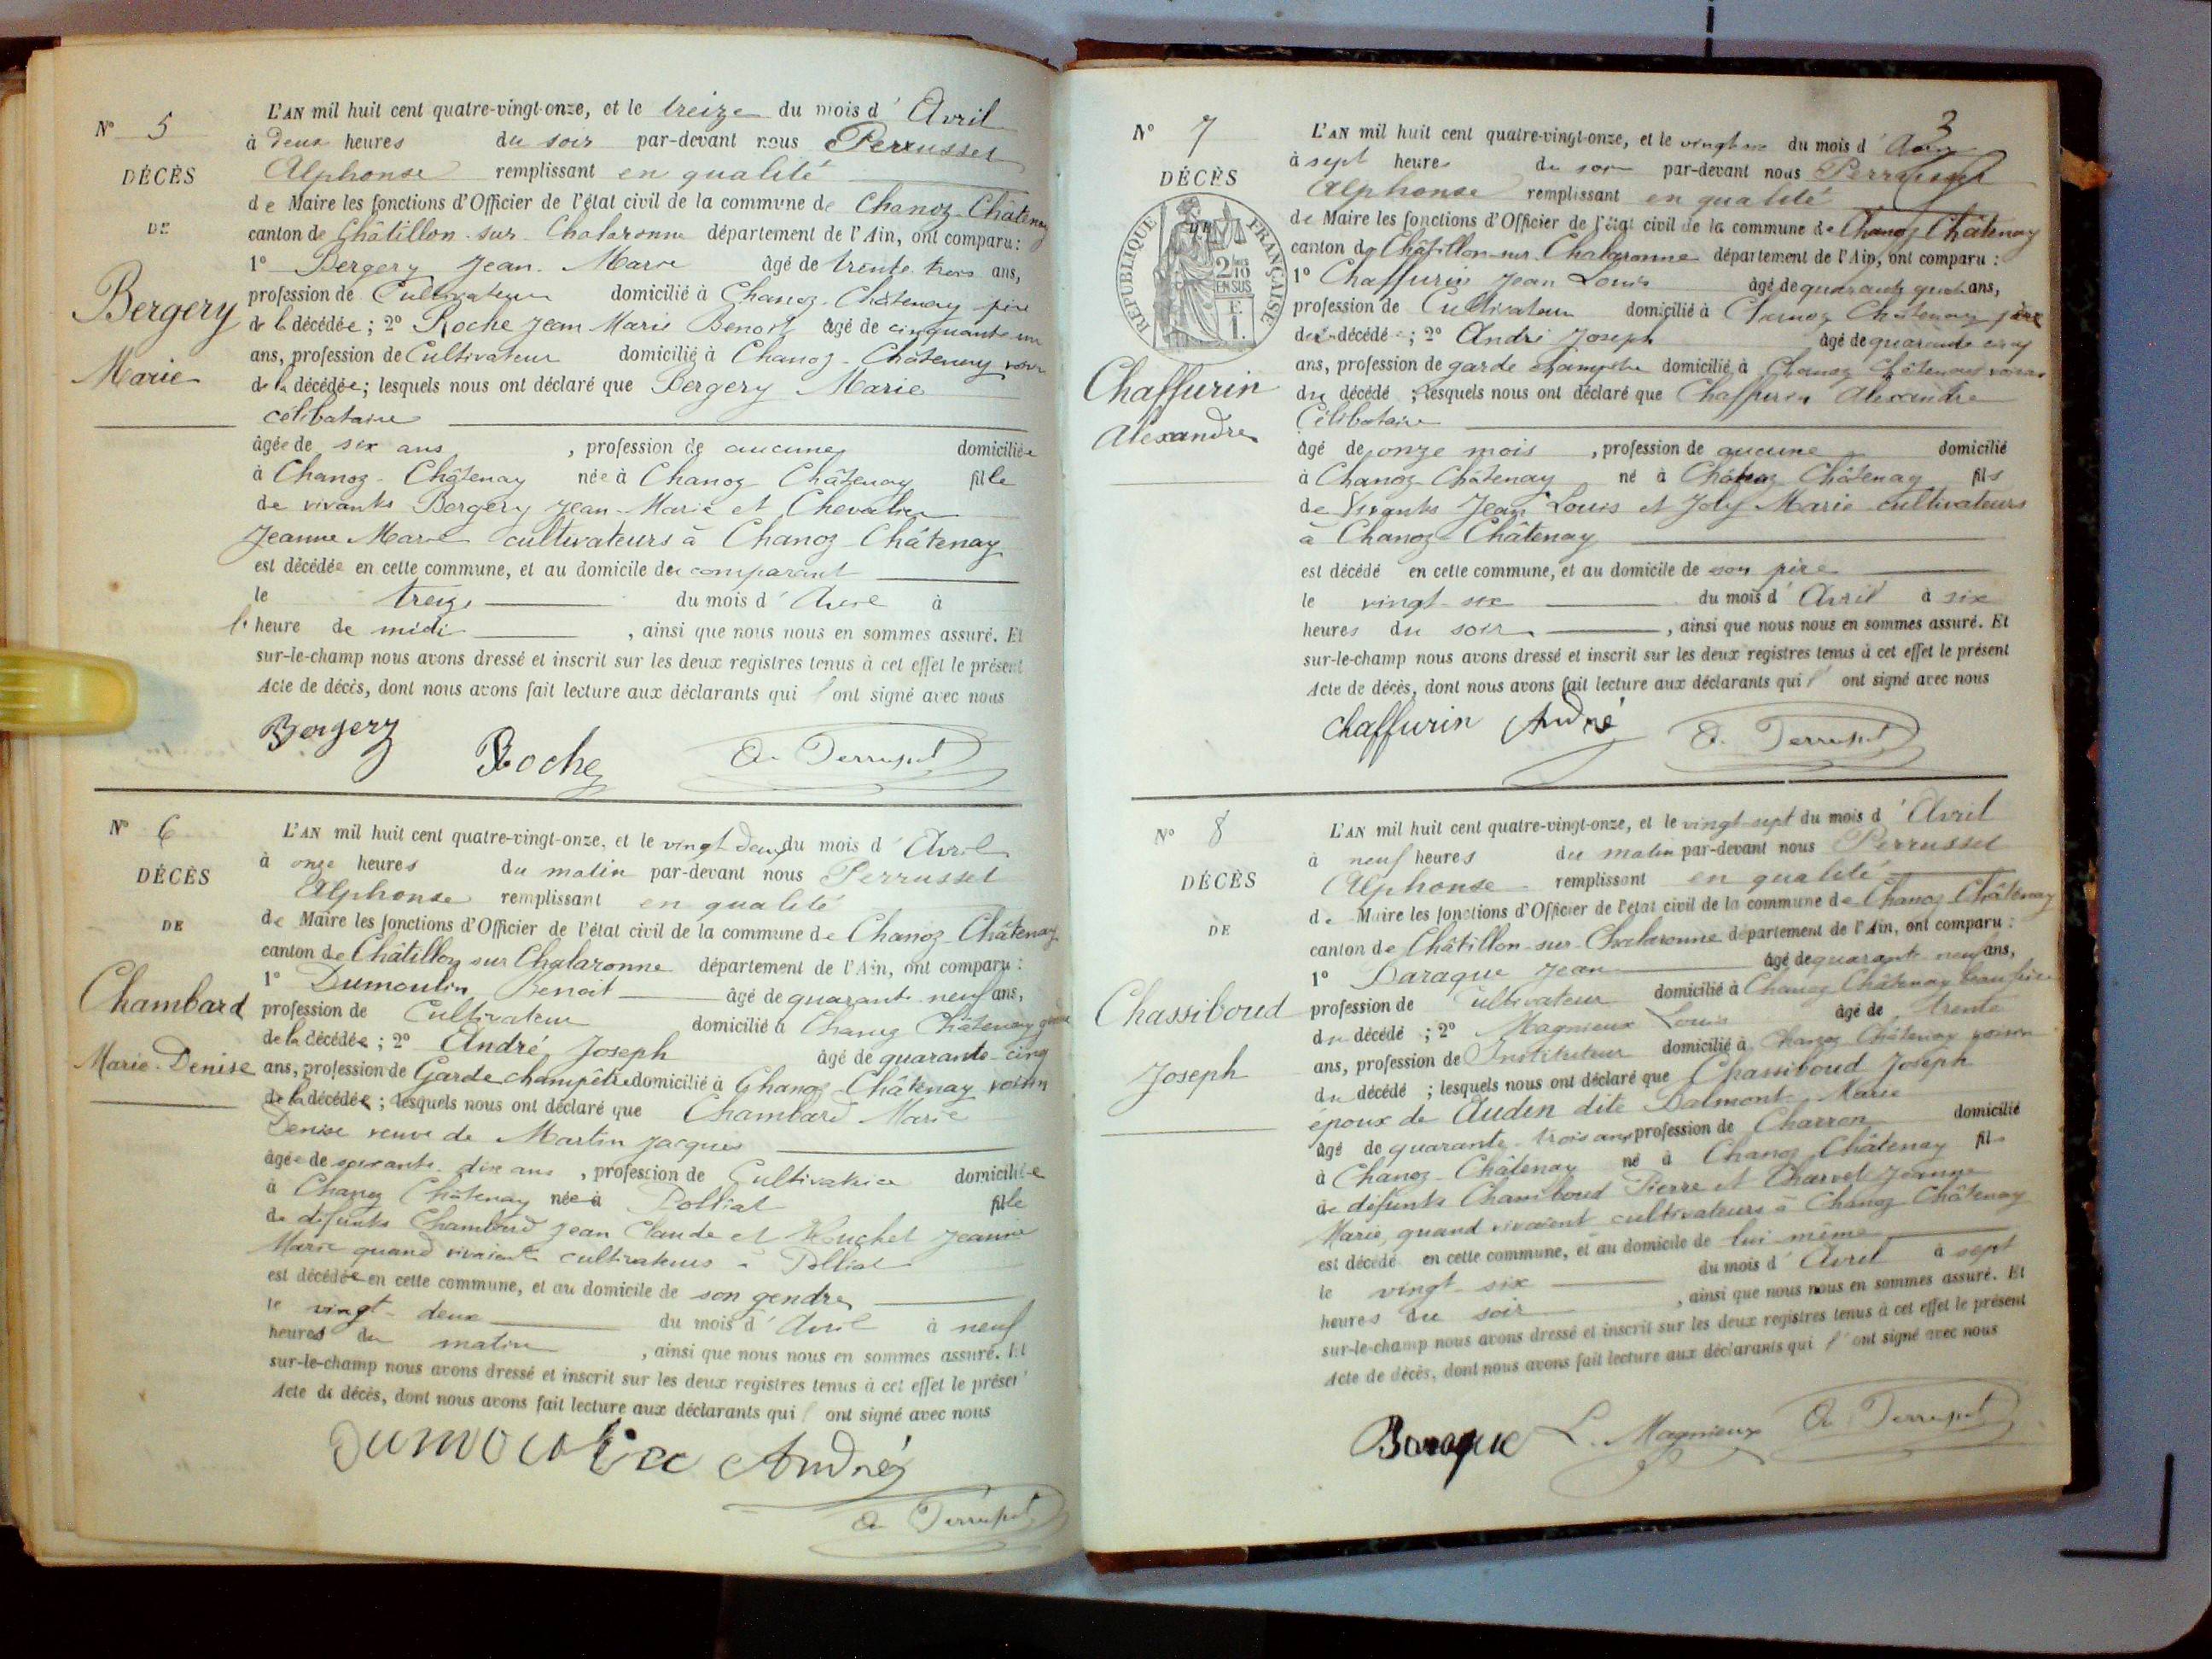 N° 5
DÉCÈS
DE
Bergery
Marie
L'AN mil huit cent quatre-vingt-onze, et le treize du mois d' Avril
à deux heures du soir par-devant nous Perrusset
Alphonse remplissant en qualité
de Maire les fonctions d'Officier de l'état civil de la commune de Chanoz-Châtenay
canton de Châtillon-sur-Chalaronne département de l'Ain, ont comparu :
1° Bergery Jean-Marie âgé de trente trois ans,
profession de Cultivateur domicilié à Chanoz-Châtenay père
de la décédée ; 2° Roche Jean Marie Benoit âgé de cinquante un
ans, profession de Cultivateur domicilié à Chanoz-Châtenay voisin
de la décédée ; lesquels nous ont déclaré que Bergery Marie
célibataire
âgée de six ans , profession de aucune domiciliée
à Chanoz-Châtenay née à Chanoz Châtenay fille
de vivants Bergery Jean-Marie et Chevalier
Jeanne Marie cultivateurs à Chanoz-Châtenay
est décédée en cette commune, et au domicile du comparant
le treize du mois d' Avril à
l' heure de midi , ainsi que nous nous en sommes assuré. Et
sur-le-champ nous avons dressé et inscrit sur les deux registres tenus à cet effet le présent
Acte de décès, dont nous avons fait lecture aux déclarants qui l' ont signé avec nous
Bergery Roche A. Perrusset
N° 6
DÉCÈS
DE
Chambard
Marie-Denise
L'AN mil huit cent quatre-vingt-onze, et le vingt deux du mois d' Avril
à onze heures du matin par-devant nous Perrusset
Alphonse remplissant en qualité
de Maire les fonctions d'Officier de l'état civil de la commune de Chanoz-Châtenay
canton de Châtillon sur Chalaronne département de l'Ain, ont comparu :
1° Dumoulin Benoit âgé de quarante-neuf ans,
profession de Cultivateur domicilié à Chanoz Châtenay gendre
de la décédée ; 2° André Joseph âgé de quarante-cinq
ans, profession de Garde champêtre domicilié à Chanoz-Châtenay voisin
de la décédée ; lesquels nous ont déclaré que Chambard Marie
Denise veuve de Martin Jacques
âgée de soixante-dix ans , profession de Cultivatrice domiciliée
à Chanoz Châtenay née à Polliat fille
de défunts Chambard Jean Claude et Jeanne
Marie quand vivaient cultivateurs à Polliat
est décédée en cette commune, et au domicile de son gendre
le vingt-deux du mois d' Avril à neuf
heures du matin , ainsi que nous nous en sommes assuré. Et
sur-le-champ nous avons dressé et inscrit sur les deux registres tenus à cet effet le présent
Acte de décès, dont nous avons fait lecture aux déclarants qui l' ont signé avec nous
Dumoulin André
A. Perrusset
3
N° 7
DÉCÈS
DE
RÉPUBLIQUE FRANÇAISE
2/10 EN SUS
E.
1.
Chaffurin
Alexandre
L'AN mil huit cent quatre-vingt-onze, et le vingt six du mois d' Avril
à sept heures du soir par-devant nous Perrusset
Alphonse remplissant en qualité
de Maire les fonctions d'Officier de l'état civil de la commune de Chanoz Châtenay
canton de Châtillon-sur-Chalaronne département de l'Ain, ont comparu :
1° Chaffurin Jean Louis âgé de quarante quatre ans,
profession de Cultivateur domicilié à Chanoz Châtenay père
du décédé ; 2° André Joseph âgé de quarante cinq
ans, profession de garde champêtre domicilié à Chanoz Châtenay voisin
du décédé ; lesquels nous ont déclaré que Chaffurin Alexandre
Célibataire
âgé de onze mois , profession de aucune domicilié
à Chanoz-Châtenay né à Chanoz Châtenay fils
de Vivants Jean Louis et Joly Marie cultivateurs
à Chanoz-Châtenay
est décédé en cette commune, et au domicile de son père
le vingt-six du mois d' Avril à six
heures du soir , ainsi que nous nous en sommes assuré. Et
sur-le-champ nous avons dressé et inscrit sur les deux registres tenus à cet effet le présent
Acte de décès, dont nous avons fait lecture aux déclarants qui l' ont signé avec nous
Chaffurin André A. Perrusset
N° 8
DÉCÈS
DE
Chassiboud
Joseph
L'AN mil huit cent quatre-vingt-onze, et le vingt-sept du mois d' Avril
à neuf heures du matin par-devant nous Perrusset
Alphonse remplissant en qualité
de Maire les fonctions d'Officier de l'état civil de la commune de Chanoz Châtenay
canton de Châtillon-sur-Chalaronne département de l'Ain, ont comparu :
1° Baraque Jean âgé de quarante neuf ans,
profession de Cultivateur domicilié à Chanoz Châtenay beau frère
du décédé ; 2° Magnieux Louis âgé de trente
ans, profession de Instituteur domicilié à Chanoz Châtenay voisin
du décédé ; lesquels nous ont déclaré que Chassiboud Joseph
époux de Audin dite Dalmont Marie
âgé de quarante-trois ans profession de Charron domicilié
à Chanoz-Châtenay né à Chanoz Châtenay fils
de défunts Chassiboud Pierre et Charvet Jeanne
Marie, quand vivaient cultivateurs à Chanoz Châtenay
est décédé en cette commune, et au domicile de lui même
le vingt-six du mois d' Avril à sept
heures du soir , ainsi que nous nous en sommes assuré. Et
sur-le-champ nous avons dressé et inscrit sur les deux registres tenus à cet effet le présent
Acte de décès, dont nous avons fait lecture aux déclarants qui l' ont signé avec nous
Baraque L. Magnieux A. Perrusset